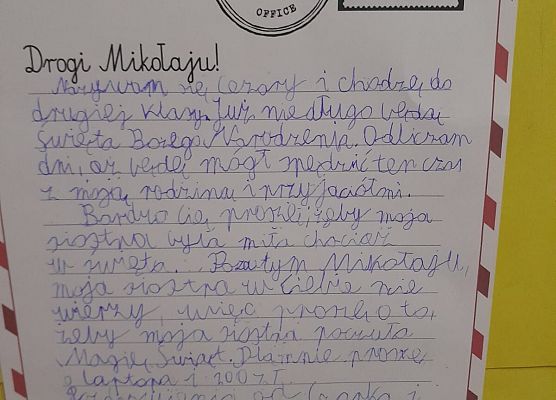 OFFICE
Drogi Mikołaju!
Nazywam się Cezary i chodzę do
drugiej klasy. Już niedługo będą
Święta Bożego Narodzenia. Odliczam
dni, aż będę mógł spędzić ten czas
z moją rodziną i przyjaciółmi.
Bardzo Cię proszę, żeby moja
siostra była miła chociaż
w święta. Pozatym Mikołaju,
moja siostra w Ciebie nie
wierzy, więc proszę o to,
żeby moja siostra poczuła
Magię Świąt. Dla mnie proszę
o laptopa i 200 zł.
Pozdrowienia od Czarka i